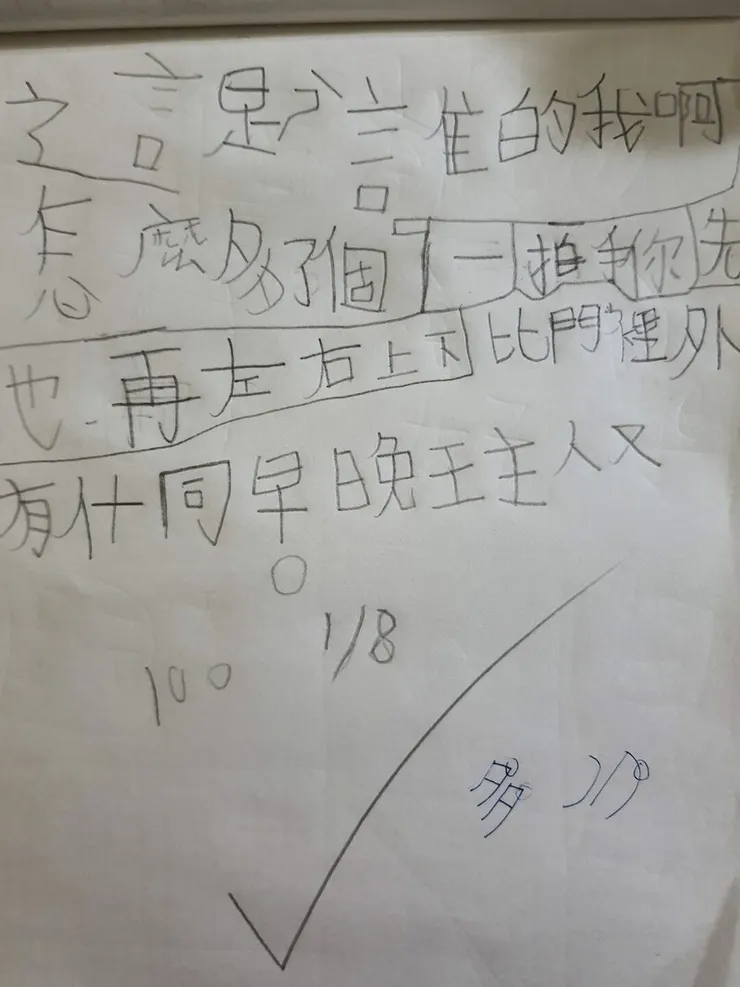 這是誰的我啊
怎麼多了個一拍你先
也再左右上下比門裡外
有什同早晚王主人又
1/8
100
多 2/9